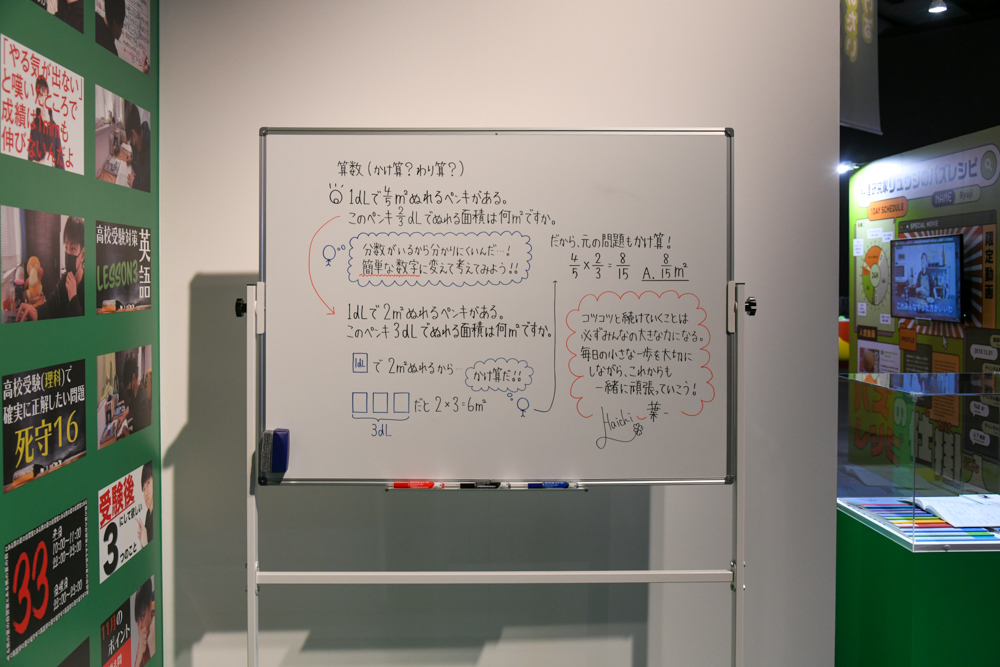 「やる気が出ない」
と嘆いたところで
成績は1mmも
伸びないんだよ
高校受験対策
英語
LESSON3
高校受験(理科)で
確実に正解したい問題
死守16
受験後
3にして欲しい
3つのこと
33
11月の
ポイント
算数(かけ算?わり算?)
1dLで4/5m²ぬれるペンキがある。
このペンキ2/3dLでぬれる面積は何m²ですか。
分数がいるから分かりにくいんだ…!
簡単な数字に変えて考えてみよう!!
1dLで2m²ぬれるペンキがある。
このペンキ3dLでぬれる面積は何m²ですか。
1dL で 2m²ぬれるから…
かけ算だ!!
だと 2×3=6m²
3dL
だから、元の問題もかけ算!
4/5×2/3=8/15
A. 8/15m²
コツコツと続けていくことは
必ずみんなの大きな力になる。
毎日の小さな一歩を大切に
しながら、これからも
一緒に頑張っていこう!
Haichi
葉一
リュウジのバズレシピ
Ryuji
1DAY SCHEDULE
SPECIAL MOVIE
限定動画
バズ
レシピ
仕掛